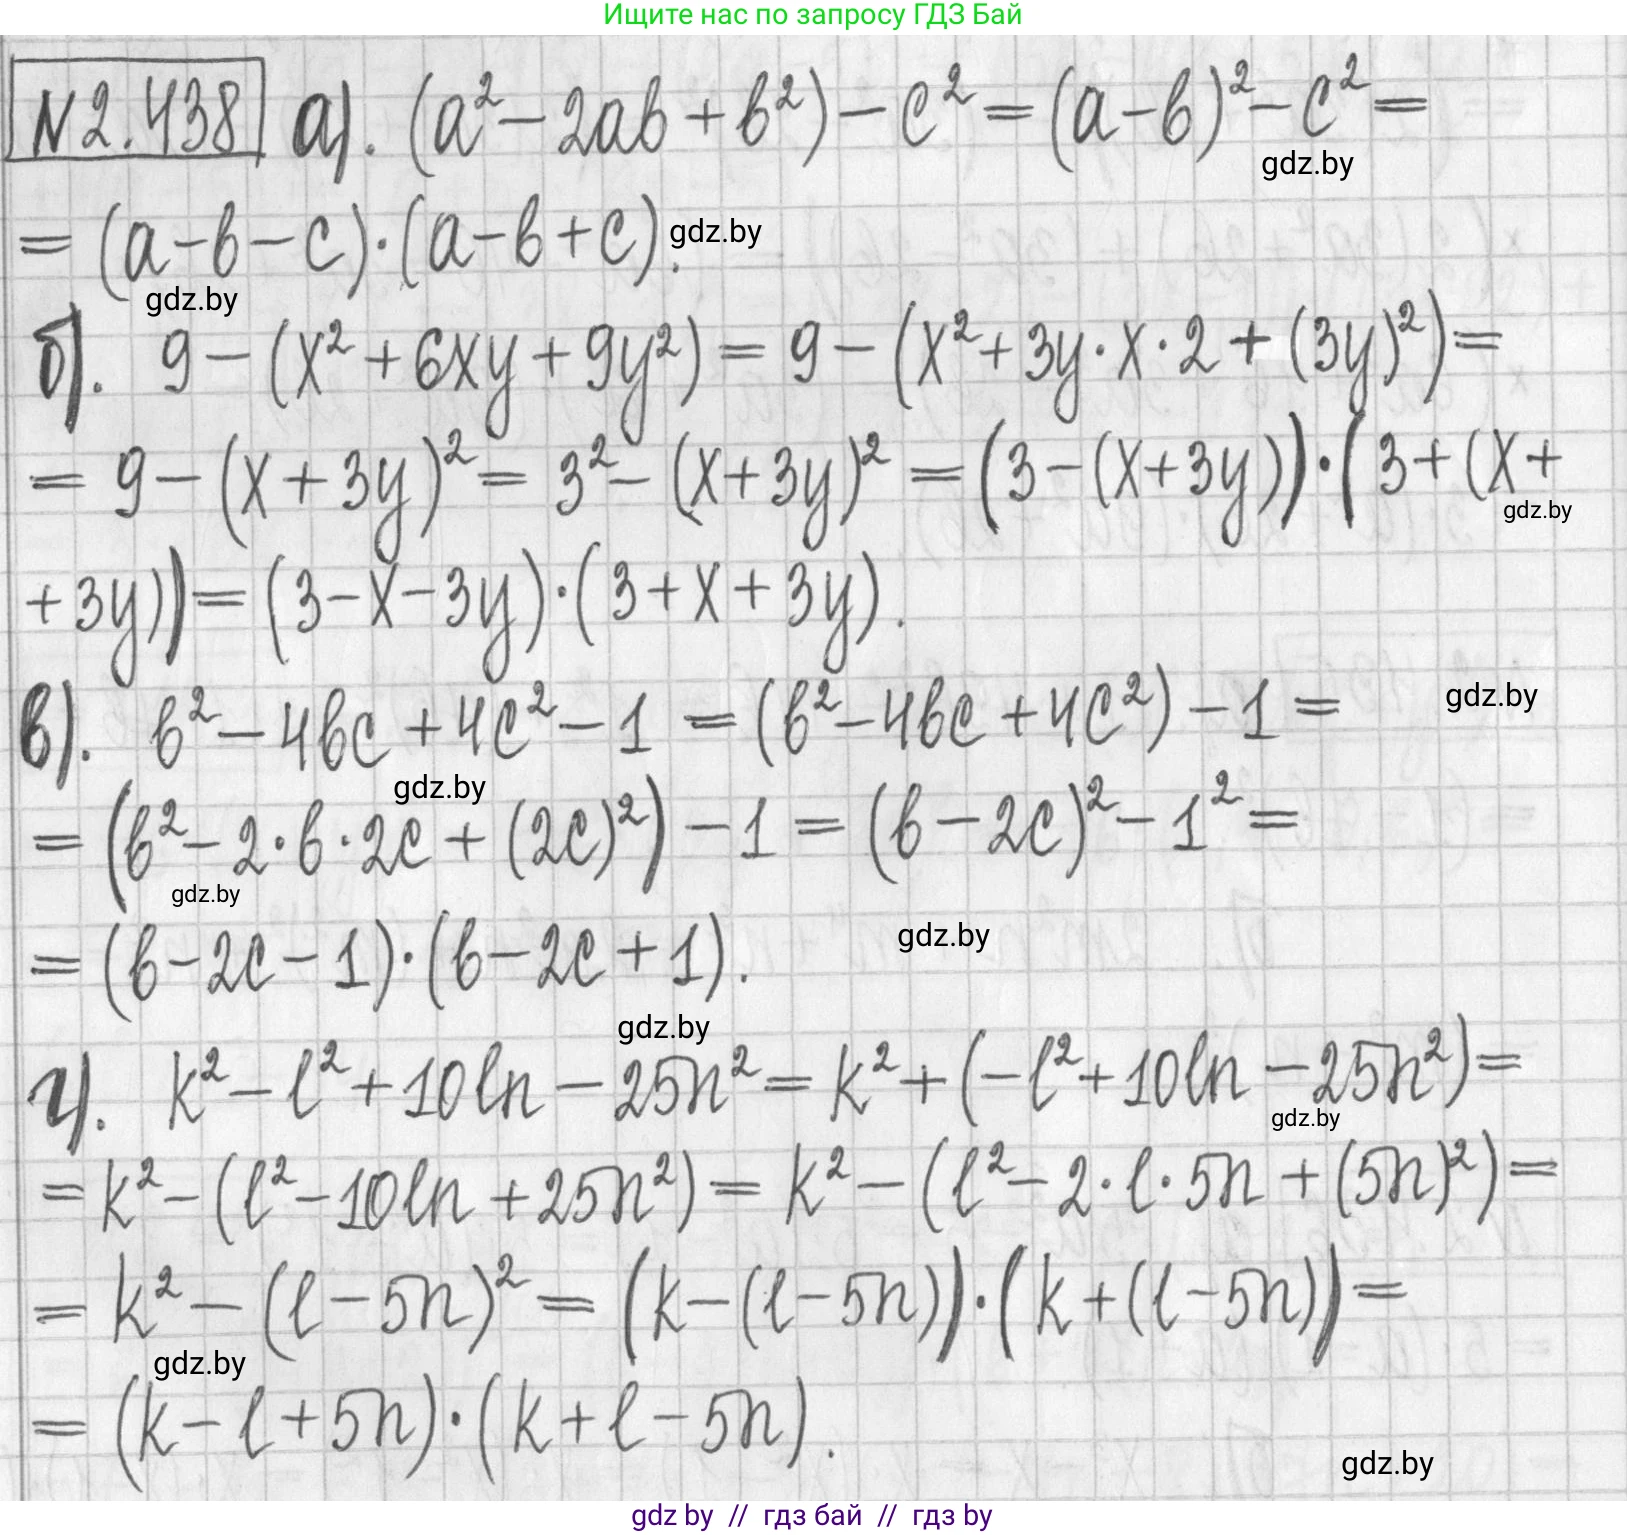 Ищите нас по запросу ГДЗ Бай
№2.438 а). (a² - 2ab + b²) - c² = (a - b)² - c² =
gdz.by
= (a - b - c) · (a - b + c). gdz.by
gdz.by
б). 9 - (x² + 6xy + 9y²) = 9 - (x² + 3y · x · 2 + (3y)²) =
= 9 - (x + 3y)² = 3² - (x + 3y)² = (3 - (x + 3y)) · (3 + (x +
gdz.by
+ 3y)) = (3 - x - 3y) · (3 + x + 3y).
в). b² - 4bc + 4c² - 1 = (b² - 4bc + 4c²) - 1 = gdz.by
gdz.by
= (b² - 2 · b · 2c + (2c)²) - 1 = (b - 2c)² - 1² =
gdz.by
= (b - 2c - 1) · (b - 2c + 1). gdz.by
gdz.by
г). k² - l² + 10ln - 25n² = k² + (-l² + 10ln - 25n²) =
gdz.by
= k² - (l² - 10ln + 25n²) = k² - (l² - 2 · l · 5n + (5n)²) =
= k² - (l - 5n)² = (k - (l - 5n)) · (k + (l - 5n)) =
gdz.by
= (k - l + 5n) · (k + l - 5n).
gdz.by
gdz by // гдз бай // гдз by